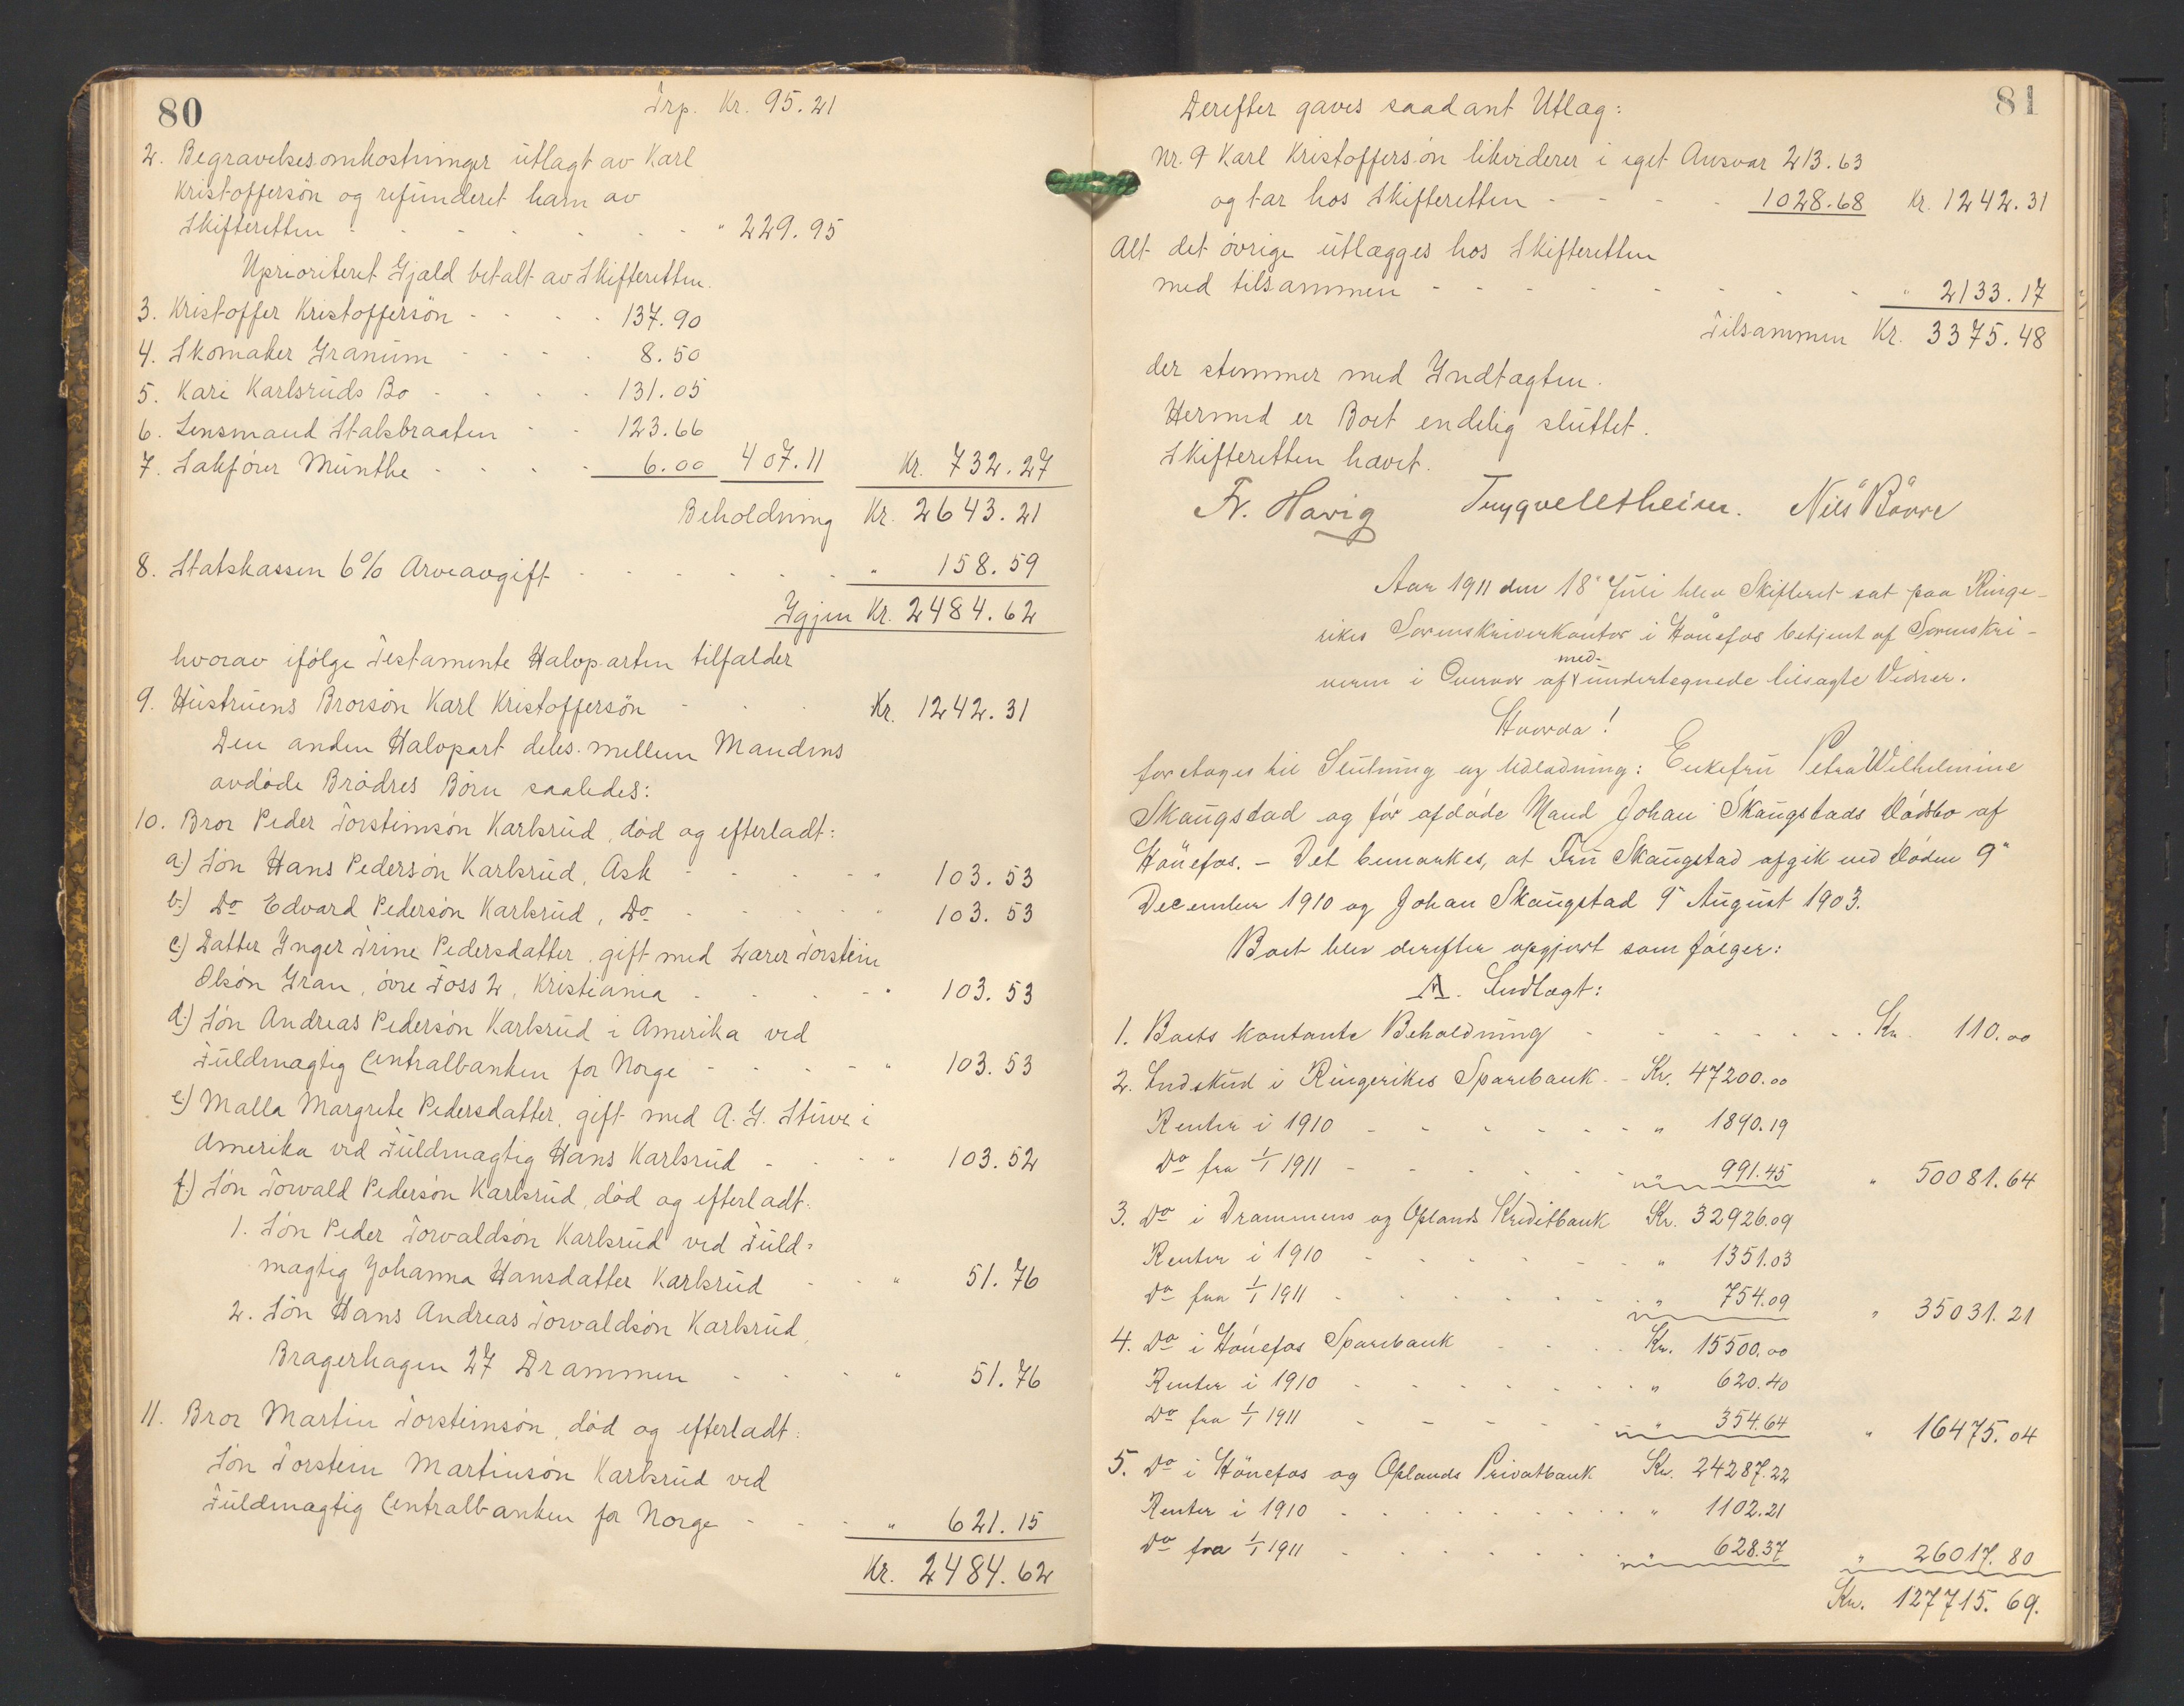 80
Trp. Kr. 95.21
2. Begravelsesomkostninger utlagt av Karl
Kristoffersön og refunderet ham av
Skifteretten - - - - - - " 229.95
Uprioriteret Gjæld betalt av Skifteretten.
3. Kristoffer Kristoffersön - - - - 137.90
4. Skomaker Granum - - - - 8.50
5. Kari Karlsruds Bo - - - - 131.05
6. Lensmand Stalsbraaten - - 123.66
7. Sakförer Munthe - - - - 6.00 407.11 Kr. 732.27
Beholdning Kr. 2643.21
8. Statskassen 6% Arveavgift - - - - - - " 158.59
Igjen Kr. 2484.62
hvorav ifölge Testamente Halvparten tilfalder
9. Hustruens Brorsön Karl Kristoffersön - - - Kr. 1242.31
Den anden Halvpart deles mellem Mandens
avdöde Brödres Börn saaledes:
10. Bror Peder Torsteinsön Karlsrud, död og efterladt:
a) Sön Hans Pedersön Karlsrud, Ask - - - - " 103.53
b) Do Edvard Pedersön Karlsrud, Do - - - - " 103.53
c) Datter Inger Trine Pedersdatter, gift med Lærer Torstein
Olsön Gran, övre Foss 2, Kristiania - - - - " 103.53
d) Sön Andreas Pedersön Karlsrud i Amerika ved
Fuldmægtig Centralbanken for Norge - - - - " 103.53
e) Malla Margrete Pedersdatter, gift med A. G. Sturve i
Amerika ved Fuldmægtig Hans Karlsrud - - - " 103.52
f) Sön Torvald Pedersön Karlsrud, död og efterladt:
1. Sön Peder Torvaldsön Karlsrud ved Fuld-
mægtig Johanna Hansdatter Karlsrud - - " 51.76
2. Sön Hans Andreas Torvaldsön Karlsrud,
Bragerhagen 27 Drammen - - - - " 51.76
11. Bror Martin Torsteinsön, död og efterladt:
Sön Torstein Martinsön Karlsrud ved
Fuldmægtig Centralbanken for Norge - - - " 621.15
Kr. 2484.62
81
Derefter gaves saadant Utlæg:
Nr. 9 Karl Kristoffersön likviderer i eget Ansvar 213.63
og tar hos Skifteretten - - - - 1028.68 Kr. 1242.31
Alt det övrige utlægges hos Skifteretten
med tilsammen - - - - - - - - " 2133.17
Tilsammen Kr. 3375.48
der stemmer med Indtægten.
Hermed er Boet endelig sluttet.
Skifteretten hævet.
Fr. Havig Nils Bövre
Aar 1911 den 18' Juli blev Skifteret sat paa Ringe-
rikes Sorenskriverkontor i Hönefos betjent af Sorenskri-
veren i Overvær af med-undertegnede tilsagte Vidner.
Hvorda!
foretages til Slutning og Udlodning: Enkefru Petra Wilhelmine
Skaugstad og för afdöde Mand Johan Skaugstads Dödsbo af
Hönefos. - Det bemærkes, at Fru Skaugstad afgik ved Döden 9"
December 1910 og Johan Skaugstad 9" August 1903.
Boet blev derefter opgjort som fölger:
A. Indtægt:
1. Boets kontante Beholdning - - - - - - - Kr. 110.00
2. Indskud i Ringerikes Sparebank - Kr. 47200.00
Renter i 1910 - - - - - - " 1890.19
Do fra 1/1 1911 - - - - - - " 991.45 " 50081.64
3. Do i Drammens og Oplands Kreditbank Kr. 32926.09
Renter i 1910 - - - - - - " 1351.03
Do fra 1/1 1911 - - - - - - " 754.09 " 35031.21
4. Do i Hönefos Sparebank - - - Kr. 15500.00
Renter i 1910 - - - - - - - " 620.40
Do fra 1/1 1911 - - - - - - " 354.64 " 16475.04
5. Do i Hönefos og Oplands Privatbank Kr. 24287.22
Renter i 1910 - - - - - - - " 1102.21
Do fra 1/1 1911 - - - - - - " 628.37 " 26017.80
Kr. 127715.69.